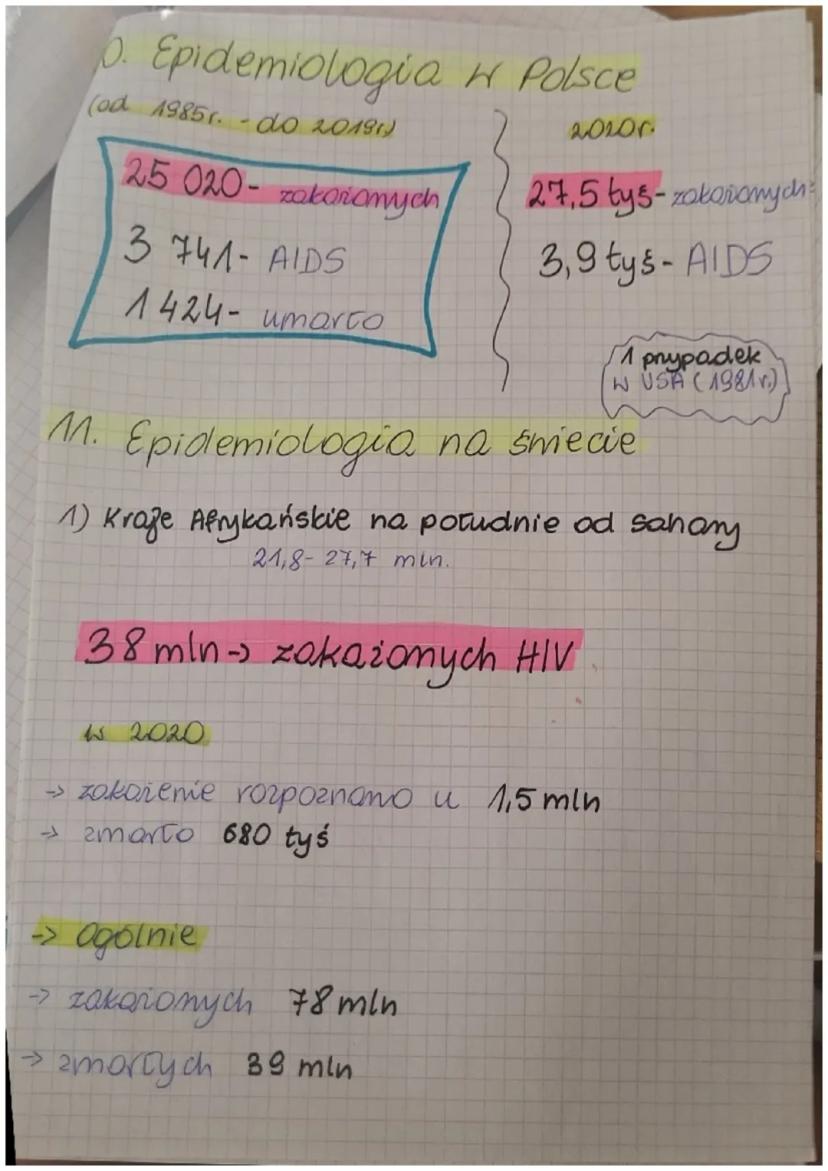 0. Epidemiologia w Polsce
(od 1985r. - do 2019r)
25 020 - zakażonych
3 741 - AIDS
1 424 - umarło
2020r.
27,5 tyś - zakażonych
3,9 tyś - AIDS
1 przypadek
w USA (1981r.)
11. Epidemiologia na świecie
1) Kraje Afrykańskie na południe od Sahary
21,8 - 27,7 mln.
38 mln -> zakażonych HIV
w 2020
-> zakażenie rozpoznano u 1,5 mln
-> zmarło 680 tyś
-> Ogólnie
-> zakażonych 78 mln
-> zmarłych 39 mln